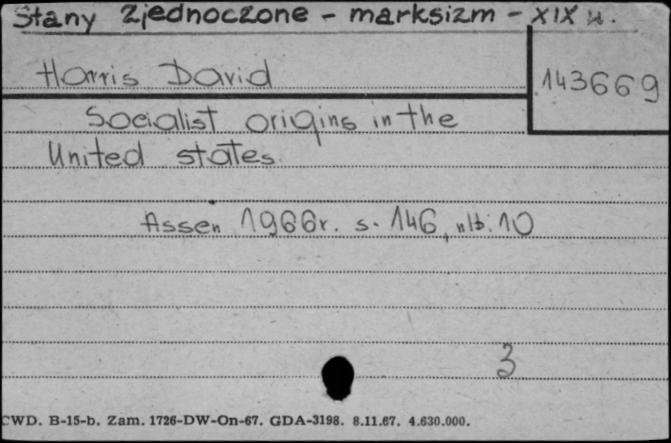 Stany Zjednoczone - marksizm - XIX w.
Harris David
143669
Socialist origins in the
United states
Assen 1966r. s. 146, nlb. 10
3
CWD. B-15-b. Zam. 1726-DW-On-67. GDA-3198. 8.11.67. 4.630.000.